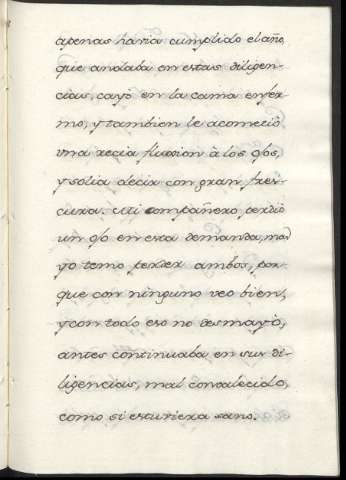 apenas havia cumplido el año
que andaba en estas diligen-
cias, cayó en la cama enfer-
mo, y tambien le acometió
una recia fluxion à los ojos,
y solia decir con gran fres-
cura: Mi compañero perdió
un ojo en esta demanda, mas
yo temo perder ambos, por-
que con ninguno veo bien,
y con todo eso no desmayò,
antes continuaba en sus di-
ligencias, mal convalecido,
como si estuviera sano.